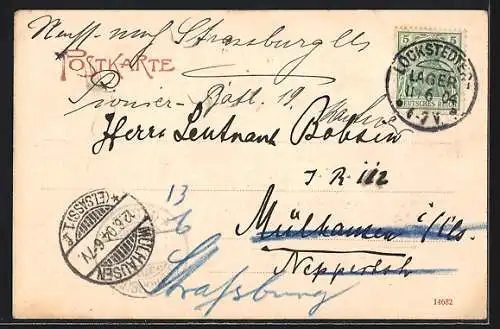 Strassburg Els
POSTKARTE
5 5
LOCKSTEDTER LAGER
11 6
6-7 V.
DEUTSCHES REICH
Pionier-Batl. 19.
Herrn Leutnant Bobsien
J R 112
13
6
Mülhausen i/Els.
MÜLHAUSEN
12.6.04.6-7V.
*(ELSASS)1.e
Strassburg
14682